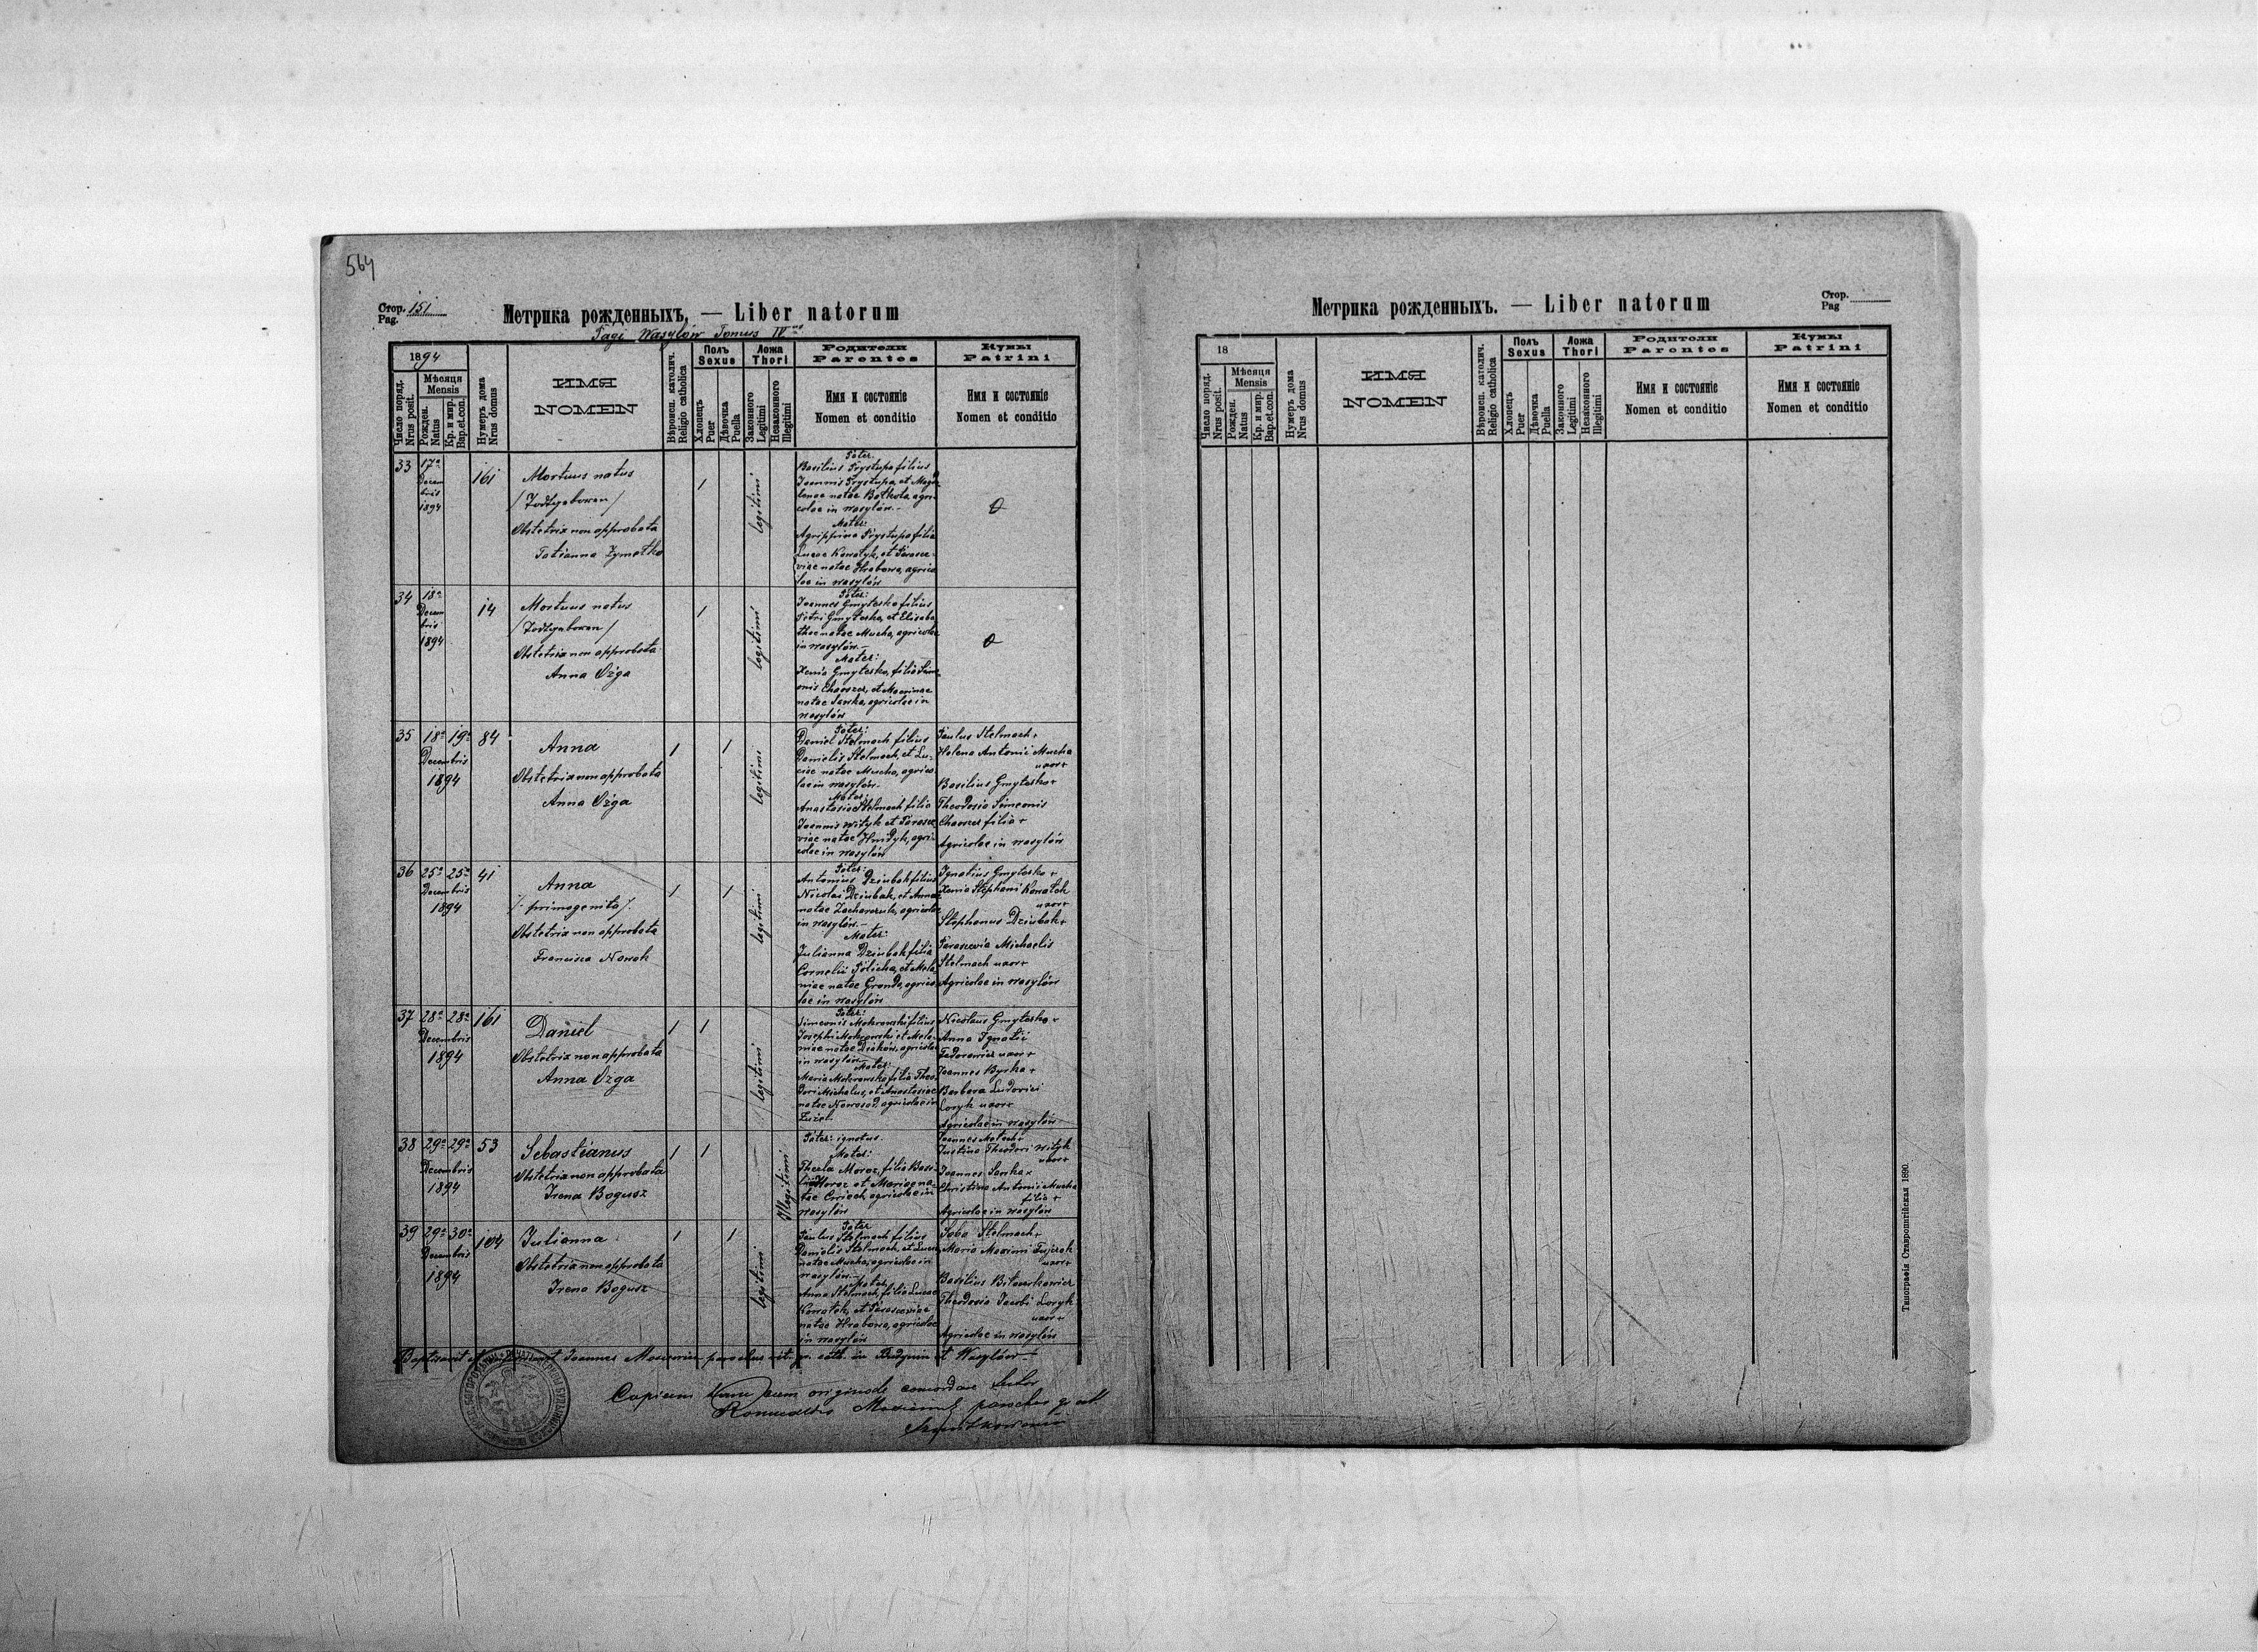 564
Стор. 151
Pag.
Метрика рожденныхъ. — Liber natorum
Pagi Wasylów Tomus IV
1894
Число поряд.
Nrus posit.
Мѣсяця
Mensis
Рожден.
Natus
Кр. и мир.
Bap. et. con.
Нумеръ дома
Nrus domus
ИМЯ
NOMEN
Вѣроисп. католич.
Religio catholica
Полъ
Sexus
Хлопецъ
Puer
Дѣвочка
Puella
Ложа
Thori
Законного
Legitimi
Незаконного
Illegitimi
Родители
Parentes
Имя и состояніе
Nomen et conditio
Кумы
Patrini
Имя и состояніе
Nomen et conditio
33 17a Decembris 1894 161
Mortuus natus
/Todtgeboren/
Obstetrix non approbata
Tatianna
1
legitimi
Pater:
Basilius Prystupa filius
Joannis Prystupa, et Magdalenae natae agricolae in Wasylów.
Mater:
Agrippina Prystupa filia
Lucae Kowalyk, et Parasceviae natae Hrabowa, agricolae in Wasylów
0
34 18a Decembris 1894 14
Mortuus natus
/Todtgeboren/
Obstetrix non approbata
Anna Ożga
1
legitimi
Pater:
Joannes Gmyterko filius
Petri Gmyterko, et Elisabethae natae Mucha, agricolae
in Wasylów.
Mater:
Xenia Gmyterko, filia Simeonis et Marinae
natae Sanka, agricolae in
Wasylów
0
35 18a 19a Decembris 1894 84
Anna
Obstetrix non approbata
Anna Ożga
1 1
legitimi
Pater:
Daniel Stelmach filius
Danielis Stelmach, et Luciae natae Mucha, agricolae in Wasylów.
Mater:
Anastasia Stelmach filia
Joannis Wityk et Parasceviae natae Hnidyk, agricolae in Wasylów
Paulus Stelmach +
Helena Antonii Mucha
uxor +
Basilius Gmyterko +
Theodosia Simeonis
filia +
Agricolae in Wasylów
36 25a 25a Decembris 1894 41
Anna
/: primogenita /:
Obstetrix non approbata
Francisca Nowak
1 1
legitimi
Pater:
Antonius Dziubak filius
Nicolai Dziubak, et Annae
natae agricolae
in Wasylów.
Mater:
Julianna Dziubak filia
Cornelii et Melaniae natae agricolae in Wasylów
Ignatius Gmyterko +
Xenia Stephani
uxor +
Stephanus Dziubak +
Parascevia Michaelis
Stelmach uxor +
Agricolae in Wasylów
37 28a 28a Decembris 1894 161
Daniel
Obstetrix non approbata
Anna Ożga
1 1
legitimi
Pater:
Simeonis Mokrowski filius
Josephi Mokrowski et Melaniae natae agricolae
in Wasylów
Mater:
Maria Mokrowska filia Theodori Michalus, et Anastasiae
natae Nowosad, agricolae in
Nicolaus Gmyterko +
Anna Ignatii
Fedorowicz uxor +
Joannes Byrka +
Barbara Ludovici
Loryk uxor +
Agricolae in Wasylów
38 29a 29a Decembris 1894 53
Sebastianus
Obstetrix non approbata
Irena Bogusz
1 1
Illegitimi
Pater: ignotus.
Mater:
Thecla Moroz, filia Basilii Moroz et Mariae natae agricolae in
Wasylów
Joannes
Justina Theodori Wityk
uxor +
Joannes Sanka x
Christina Antonii Mucha
filia +
Agricolae in Wasylów
39 29a 30a Decembris 1894 104
Julianna
Obstetrix non approbata
Irena Bogusz
1 1
legitimi
Pater
Paulus Stelmach filius
Danielis Stelmach, et Luciae
natae Mucha, agricolae in
Wasylów.
Mater:
Anna Stelmach, filia Lucae
et Parasceviae
natae Hrabowa, agricolae
in Wasylów
Saba Stelmach +
Maria Maximi
uxor +
Basilius
Theodosia Jacobi Loryk
uxor +
Agricolae in Wasylów
Baptisavit et Joannes parochus rit. gr. cath. in Budynin et Wasylów.
Copiam hanc cum originali concordare testor
parochus gr. cat.
Метрика рожденныхъ. — Liber natorum
Стор.
Pag
18
Число поряд.
Nrus posit.
Мѣсяця
Mensis
Рожден.
Natus
Кр. и мир.
Bap. et. con.
Нумеръ дома
Nrus domus
ИМЯ
NOMEN
Вѣроисп. католич.
Religio catholica
Полъ
Sexus
Хлопецъ
Puer
Дѣвочка
Puella
Ложа
Thori
Законного
Legitimi
Незаконного
Illegitimi
Родители
Parentes
Имя и состояніе
Nomen et conditio
Кумы
Patrini
Имя и состояніе
Nomen et conditio
Типографія Ставропигійская 1890.